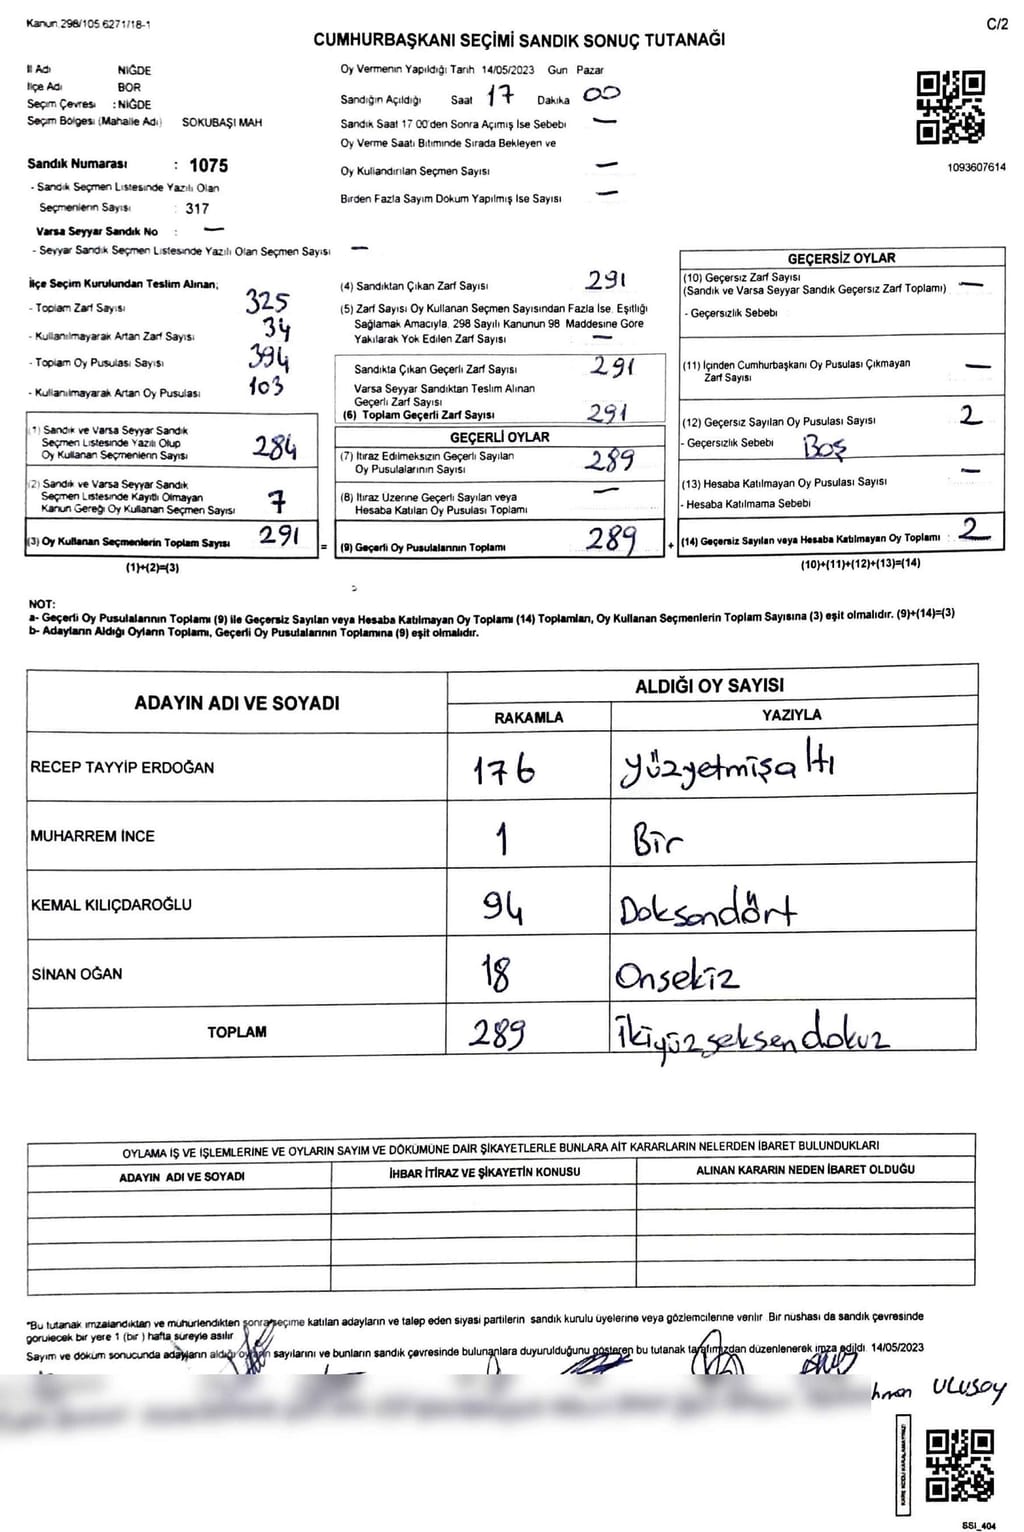 Kanun 298/105 6271/18-1
C/2
CUMHURBAŞKANI SEÇİMİ SANDIK SONUÇ TUTANAĞI
İl Adı NİĞDE
İlçe Adı BOR
Seçim Çevresi : NİĞDE
Seçim Bölgesi (Mahalle Adı) SOKUBAŞI MAH
Sandık Numarası : 1075
- Sandık Seçmen Listesinde Yazılı Olan
Seçmenlerin Sayısı : 317
Varsa Seyyar Sandık No : —
- Seyyar Sandık Seçmen Listesinde Yazılı Olan Seçmen Sayısı —
Oy Vermenin Yapıldığı Tarih 14/05/2023 Gün Pazar
Sandığın Açıldığı Saat 17 Dakika 00
Sandık Saat 17 00'den Sonra Açımış İse Sebebi —
Oy Verme Saati Bitiminde Sırada Bekleyen ve
Oy Kullandırılan Seçmen Sayısı —
Birden Fazla Sayım Döküm Yapılmış İse Sayısı —
1093607614
İlçe Seçim Kurulundan Teslim Alınan;
- Toplam Zarf Sayısı 325
- Kullanılmayarak Artan Zarf Sayısı 34
- Toplam Oy Pusulası Sayısı 394
- Kullanılmayarak Artan Oy Pusulası 103
(1) Sandık ve Varsa Seyyar Sandık
Seçmen Listesinde Yazılı Olup
Oy Kullanan Seçmenlerin Sayısı 284
(2) Sandık ve Varsa Seyyar Sandık
Seçmen Listesinde Kayıtlı Olmayan
Kanun Gereği Oy Kullanan Seçmen Sayısı 7
(3) Oy Kullanan Seçmenlerin Toplam Sayısı 291
(1)+(2)=(3)
(4) Sandıktan Çıkan Zarf Sayısı 291
(5) Zarf Sayısı Oy Kullanan Seçmen Sayısından Fazla İse, Eşitliği
Sağlamak Amacıyla, 298 Sayılı Kanunun 98 Maddesine Göre
Yakılarak Yok Edilen Zarf Sayısı —
Sandıkta Çıkan Geçerli Zarf Sayısı 291
Varsa Seyyar Sandıktan Teslim Alınan
Geçerli Zarf Sayısı
(6) Toplam Geçerli Zarf Sayısı 291
GEÇERLİ OYLAR
(7) İtiraz Edilmeksizin Geçerli Sayılan
Oy Pusulalarının Sayısı 289
(8) İtiraz Üzerine Geçerli Sayılan veya
Hesaba Katılan Oy Pusulası Toplamı —
= (9) Geçerli Oy Pusulalarının Toplamı 289
GEÇERSİZ OYLAR
(10) Geçersiz Zarf Sayısı
(Sandık ve Varsa Seyyar Sandık Geçersiz Zarf Toplamı) —
- Geçersizlik Sebebi
(11) İçinden Cumhurbaşkanı Oy Pusulası Çıkmayan
Zarf Sayısı —
(12) Geçersiz Sayılan Oy Pusulası Sayısı 2
- Geçersizlik Sebebi Boş
(13) Hesaba Katılmayan Oy Pusulası Sayısı —
- Hesaba Katılmama Sebebi
+ (14) Geçersiz Sayılan veya Hesaba Katılmayan Oy Toplamı : 2
(10)+(11)+(12)+(13)=(14)
NOT:
a- Geçerli Oy Pusulalarının Toplamı (9) ile Geçersiz Sayılan veya Hesaba Katılmayan Oy Toplamı (14) Toplamları, Oy Kullanan Seçmenlerin Toplam Sayısına (3) eşit olmalıdır. (9)+(14)=(3)
b- Adayların Aldığı Oyların Toplamı, Geçerli Oy Pusulalarının Toplamına (9) eşit olmalıdır.
ADAYIN ADI VE SOYADI ALDIĞI OY SAYISI
RAKAMLA YAZIYLA
RECEP TAYYİP ERDOĞAN 176 yüzyetmişaltı
MUHARREM İNCE 1 Bir
KEMAL KILIÇDAROĞLU 94 Doksandört
SİNAN OĞAN 18 Onsekiz
TOPLAM 289 ikiyüzseksendokuz
OYLAMA İŞ VE İŞLEMLERİNE VE OYLARIN SAYIM VE DÖKÜMÜNE DAİR ŞİKAYETLERLE BUNLARA AİT KARARLARIN NELERDEN İBARET BULUNDUKLARI
ADAYIN ADI VE SOYADI İHBAR İTİRAZ VE ŞİKAYETİN KONUSU ALINAN KARARIN NEDEN İBARET OLDUĞU
*Bu tutanak imzalandıktan ve mühürlendikten sonra seçime katılan adayların ve talep eden siyasi partilerin sandık kurulu üyelerine veya gözlemcilerine verilir Bir nüshası da sandık çevresinde
görülecek bir yere 1 (bir ) hafta süreyle asılır
Sayım ve döküm sonucunda adayların aldığı oyların sayılarını ve bunların sandık çevresinde bulunanlara duyurulduğunu gösteren bu tutanak tarafımızdan düzenlenerek imza edildi. 14/05/2023
hman ULUSOY
SSI_404